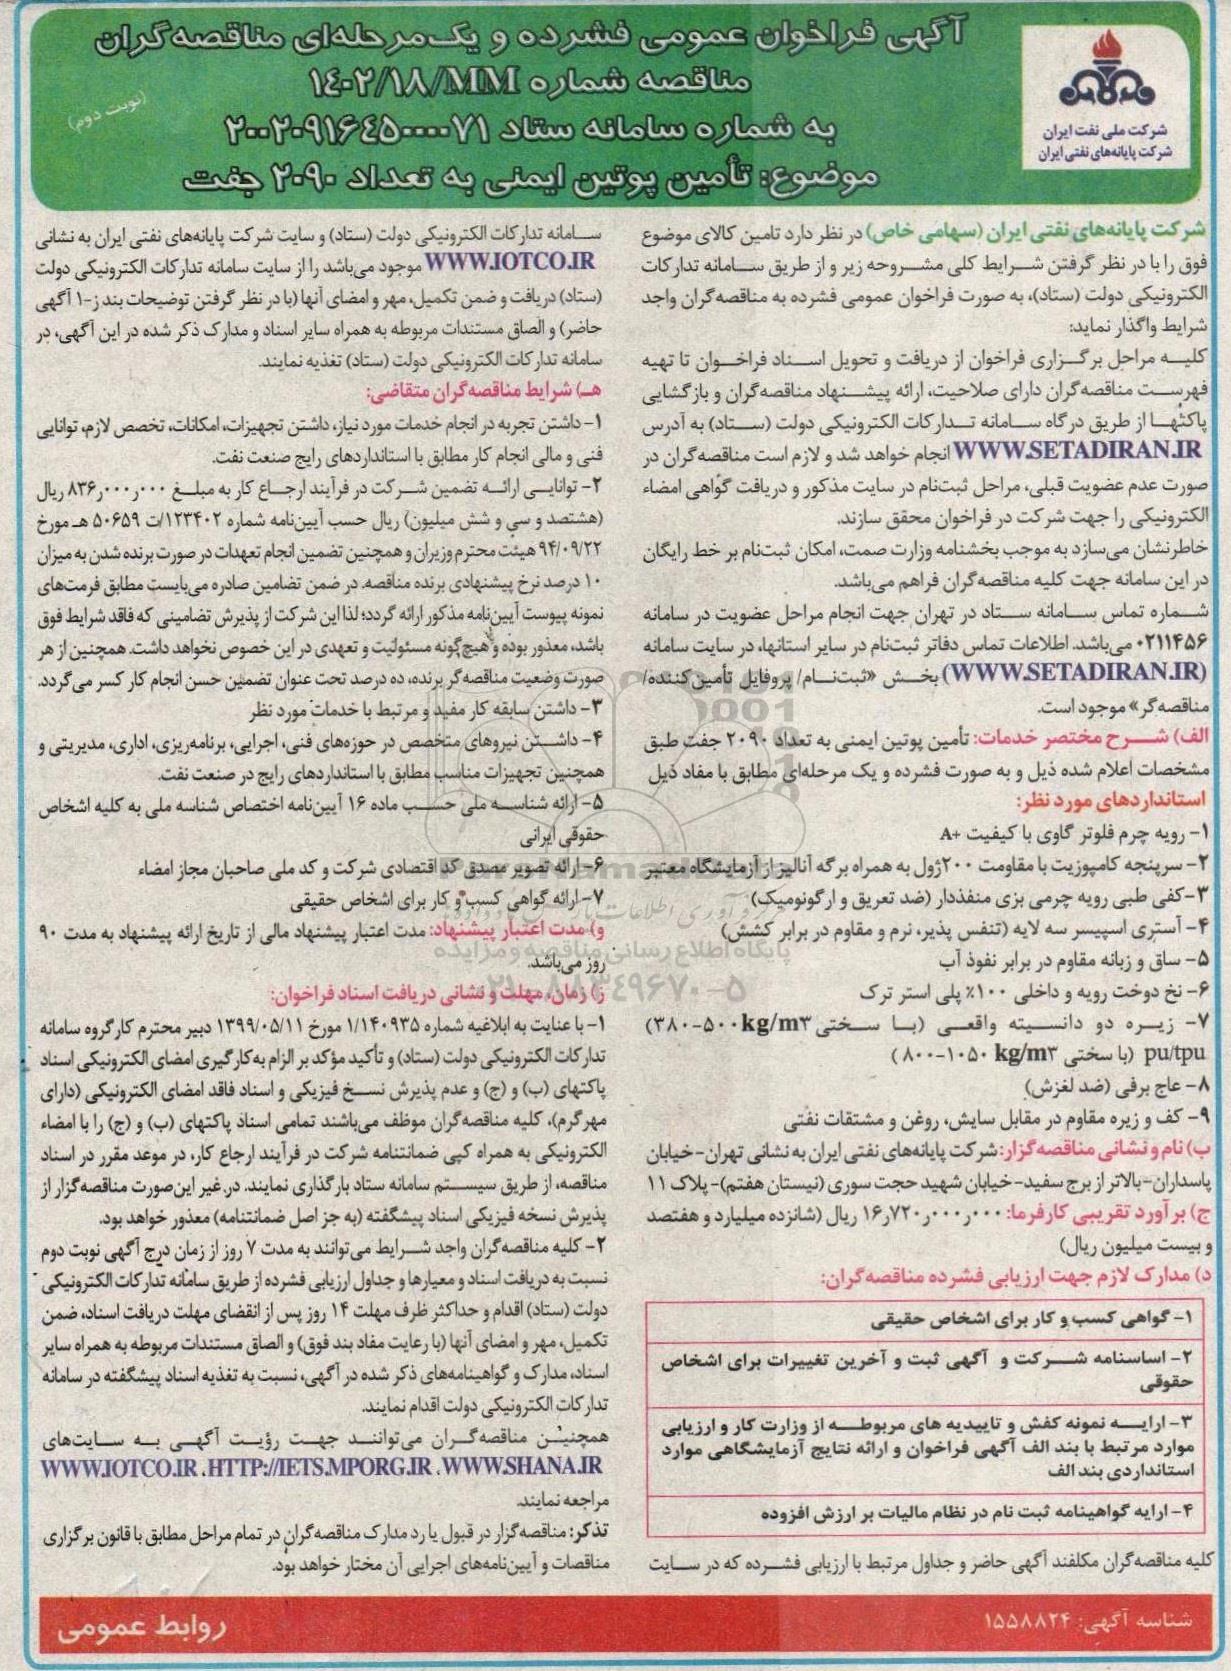 آگهی فراخوان عمومی فشرده و یک‌مرحله‌ای مناقصه‌گران
مناقصه شماره ۱۴۰۲/۱۸/MM
(نوبت دوم)
به شماره سامانه ستاد ۲۰۰۲۰۹۱۶۴۵۰۰۰۰۷۱
موضوع: تأمین پوتین ایمنی به تعداد ۲۰۹۰ جفت
شرکت ملی نفت ایران
شرکت پایانه‌های نفتی ایران
شرکت پایانه‌های نفتی ایران (سهامی خاص) در نظر دارد تامین کالای موضوع
فوق را با در نظر گرفتن شرایط کلی مشروحه زیر و از طریق سامانه تدارکات
الکترونیکی دولت (ستاد)، به صورت فراخوان عمومی فشرده به مناقصه‌گران واجد
شرایط واگذار نماید:
کلیه مراحل برگزاری فراخوان از دریافت و تحویل اسناد فراخوان تا تهیه
فهرست مناقصه‌گران دارای صلاحیت، ارائه پیشنهاد مناقصه‌گران و بازگشایی
پاکتها از طریق درگاه سامانه تدارکات الکترونیکی دولت (ستاد) به آدرس
WWW.SETADIRAN.IR انجام خواهد شد و لازم است مناقصه‌گران در
صورت عدم عضویت قبلی، مراحل ثبت‌نام در سایت مذکور و دریافت گواهی امضاء
الکترونیکی را جهت شرکت در فراخوان محقق سازند.
خاطرنشان می‌سازد به موجب بخشنامه وزارت صمت، امکان ثبت‌نام بر خط رایگان
در این سامانه جهت کلیه مناقصه‌گران فراهم می‌باشد.
شماره تماس سامانه ستاد در تهران جهت انجام مراحل عضویت در سامانه
۰۲۱۱۴۵۶ می‌باشد. اطلاعات تماس دفاتر ثبت‌نام در سایر استانها، در سایت سامانه
(WWW.SETADIRAN.IR) بخش «ثبت‌نام/ پروفایل تأمین‌کننده/
مناقصه‌گر» موجود است.
الف) شرح مختصر خدمات: تأمین پوتین ایمنی به تعداد ۲۰۹۰ جفت طبق
مشخصات اعلام شده ذیل و به صورت فشرده و یک مرحله‌ای مطابق با مفاد ذیل
استانداردهای مورد نظر:
۱- رویه چرم فلوتر گاوی با کیفیت +A
۲- سرپنجه کامپوزیت با مقاومت ۲۰۰ژول به همراه برگه آنالیز از آزمایشگاه معتبر
۳-کفی طبی رویه چرمی بزی منفذدار (ضد تعریق و ارگونومیک)
۴- آستری اسپیسر سه لایه (تنفس پذیر، نرم و مقاوم در برابر کشش)
۵- ساق و زبانه مقاوم در برابر نفوذ آب
۶- نخ دوخت رویه و داخلی ۱۰۰٪ پلی استر ترک
۷- زیره دو دانسیته واقعی (با سختی ۳۸۰-۵۰۰kg/m۳)
pu/tpu (با سختی ۸۰۰-۱۰۵۰ kg/m۳ )
۸- عاج برفی (ضد لغزش)
۹- کف و زیره مقاوم در مقابل سایش، روغن و مشتقات نفتی
ب) نام و نشانی مناقصه‌گزار: شرکت پایانه‌های نفتی ایران به نشانی تهران- خیابان
پاسداران-بالاتر از برج سفید-خیابان شهید حجت سوری (نیستان هفتم)- پلاک ۱۱
ج) برآورد تقریبی کارفرما: ۱۶٫۷۲۰٫۰۰۰٫۰۰۰ ریال (شانزده میلیارد و هفتصد
و بیست میلیون ریال)
د) مدارک لازم جهت ارزیابی فشرده مناقصه‌گران:
۱- گواهی کسب و کار برای اشخاص حقیقی
۲- اساسنامه شرکت و آگهی ثبت و آخرین تغییرات برای اشخاص
حقوقی
۳- ارایه نمونه کفش و تاییدیه های مربوطه از وزارت کار و ارزیابی
موارد مرتبط با بند الف آگهی فراخوان و ارائه نتایج آزمایشگاهی موارد
استانداردی بند الف
۴- ارایه گواهینامه ثبت نام در نظام مالیات بر ارزش افزوده
کلیه مناقصه‌گران مکلفند آگهی حاضر و جداول مرتبط با ارزیابی فشرده که در سایت
سامانه تدارکات الکترونیکی دولت (ستاد) و سایت شرکت پایانه‌های نفتی ایران به نشانی
WWW.IOTCO.IR موجود می‌باشد را از سایت سامانه تدارکات الکترونیکی دولت
(ستاد) دریافت و ضمن تکمیل، مهر و امضای آنها (با در نظر گرفتن توضیحات بند ز-۱ آگهی
حاضر) و الصاق مستندات مربوطه به همراه سایر اسناد و مدارک ذکر شده در این آگهی، در
سامانه تدارکات الکترونیکی دولت (ستاد) تغذیه نمایند.
هـ) شرایط مناقصه‌گران متقاضی:
۱- داشتن تجربه در انجام خدمات مورد نیاز، داشتن تجهیزات، امکانات، تخصص لازم، توانایی
فنی و مالی انجام کار مطابق با استانداردهای رایج صنعت نفت.
۲- توانایی ارائه تضمین شرکت در فرآیند ارجاع کار به مبلغ ۸۳۶٫۰۰۰٫۰۰۰ ریال
(هشتصد و سی و شش میلیون) ریال حسب آیین‌نامه شماره ۱۲۳۴۰۲/ت ۵۰۶۵۹ هـ مورخ
۹۴/۰۹/۲۲ هیئت محترم وزیران و همچنین تضمین انجام تعهدات در صورت برنده شدن به میزان
۱۰ درصد نرخ پیشنهادی برنده مناقصه. در ضمن تضامین صادره می‌بایست مطابق فرمت‌های
نمونه پیوست آیین‌نامه مذکور ارائه گردد؛ لذا این شرکت از پذیرش تضامینی که فاقد شرایط فوق
باشد، معذور بوده و هیچ‌گونه مسئولیت و تعهدی در این خصوص نخواهد داشت. همچنین از هر
صورت وضعیت مناقصه‌گر برنده، ده درصد تحت عنوان تضمین حسن انجام کار کسر می‌گردد.
۳- داشتن سابقه کار مفید و مرتبط با خدمات مورد نظر
۴- داشتن نیروهای متخصص در حوزه‌های فنی، اجرایی، برنامه‌ریزی، اداری، مدیریتی و
همچنین تجهیزات مناسب مطابق با استانداردهای رایج در صنعت نفت.
۵- ارائه شناسه ملی حسب ماده ۱۶ آیین‌نامه اختصاص شناسه ملی به کلیه اشخاص
حقوقی ایرانی
۶- ارائه تصویر مصدق کد اقتصادی شرکت و کد ملی صاحبان مجاز امضاء
۷- ارائه گواهی کسب و کار برای اشخاص حقیقی
و) مدت اعتبار پیشنهاد: مدت اعتبار پیشنهاد مالی از تاریخ ارائه پیشنهاد به مدت ۹۰
روز می‌باشد.
ز) زمان، مهلت و نشانی دریافت اسناد فراخوان:
۱- با عنایت به ابلاغیه شماره ۱/۱۴۰۹۳۵ مورخ ۱۳۹۹/۰۵/۱۱ دبیر محترم کارگروه سامانه
تدارکات الکترونیکی دولت (ستاد) و تأکید مؤکد بر الزام به‌کارگیری امضای الکترونیکی اسناد
پاکتهای (ب) و (ج) و عدم پذیرش نسخ فیزیکی و اسناد فاقد امضای الکترونیکی (دارای
مهر گرم)، کلیه مناقصه‌گران موظف می‌باشند تمامی اسناد پاکتهای (ب) و (ج) را با امضاء
الکترونیکی به همراه کپی ضمانتنامه شرکت در فرآیند ارجاع کار، در موعد مقرر در اسناد
مناقصه، از طریق سیستم سامانه ستاد بارگذاری نمایند. در غیر این‌صورت مناقصه‌گزار از
پذیرش نسخه فیزیکی اسناد پیشگفته (به جز اصل ضمانتنامه) معذور خواهد بود.
۲- کلیه مناقصه‌گران واجد شرایط می‌توانند به مدت ۷ روز از زمان درج آگهی نوبت دوم
نسبت به دریافت اسناد و معیارها و جداول ارزیابی فشرده از طریق سامانه تدارکات الکترونیکی
دولت (ستاد) اقدام و حداکثر ظرف مهلت ۱۴ روز پس از انقضای مهلت دریافت اسناد، ضمن
تکمیل، مهر و امضای آنها (با رعایت مفاد بند فوق) و الصاق مستندات مربوطه به همراه سایر
اسناد، مدارک و گواهینامه‌های ذکر شده در آگهی، نسبت به تغذیه اسناد پیشگفته در سامانه
تدارکات الکترونیکی دولت اقدام نمایند.
همچنین مناقصه‌گران می‌توانند جهت رؤیت آگهی به سایت‌های
WWW.IOTCO.IR ،HTTP://IETS.MPORG.IR ،WWW.SHANA.IR
مراجعه نمایند.
تذکر: مناقصه‌گزار در قبول یا رد مدارک مناقصه‌گران در تمام مراحل مطابق با قانون برگزاری
مناقصات و آیین‌نامه‌های اجرایی آن مختار خواهد بود.
پایگاه اطلاع رسانی مناقصه و مزایده
۰۲۱-۸۸۳۴۹۶۷۰-۵
شناسه آگهی: ۱۵۵۸۸۲۴
روابط عمومی